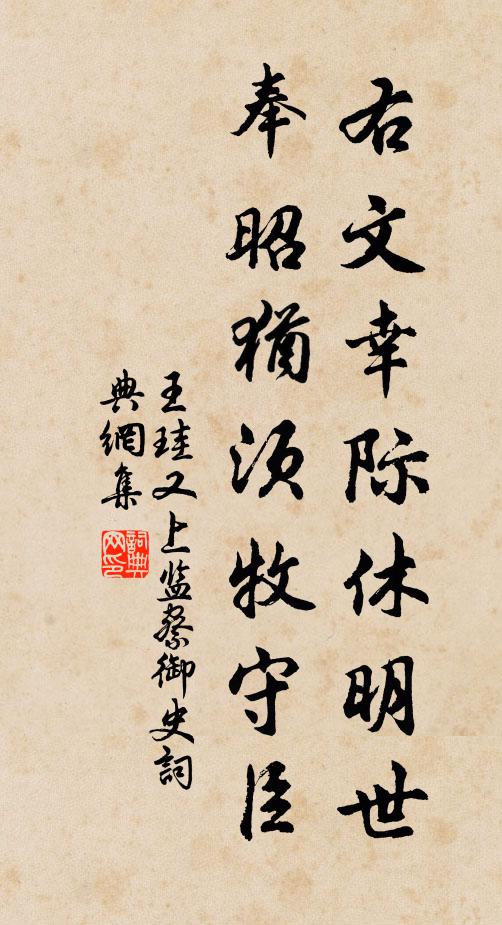 右文幸际休明世
奉昭猶须牧守臣
王珪又上监察御史詞
典網集
詞典网印